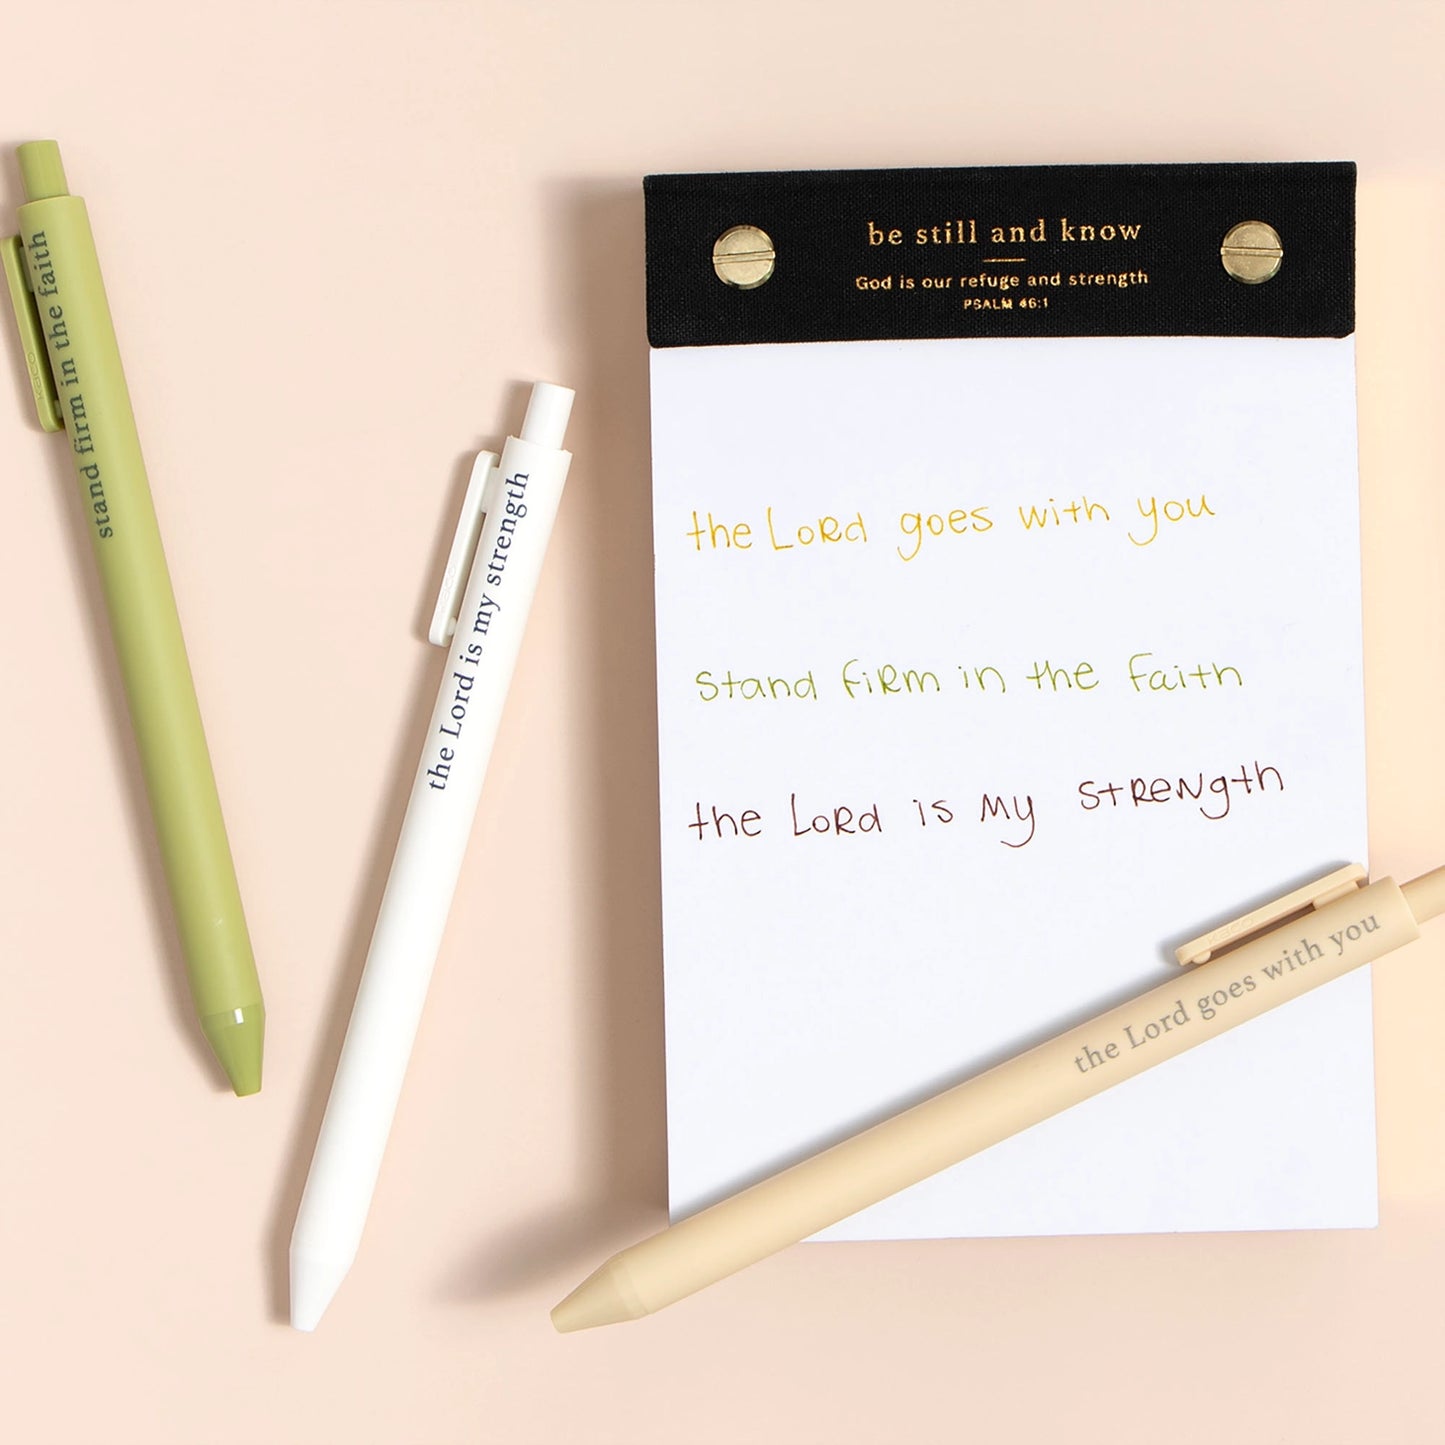 stand firm in the faith
KACO
the Lord is my strength
KACO
be still and know
God is our refuge and strength
PSALM 46:1
the Lord goes with you
stand firm in the faith
the Lord is my strength
KACO
the Lord goes with you